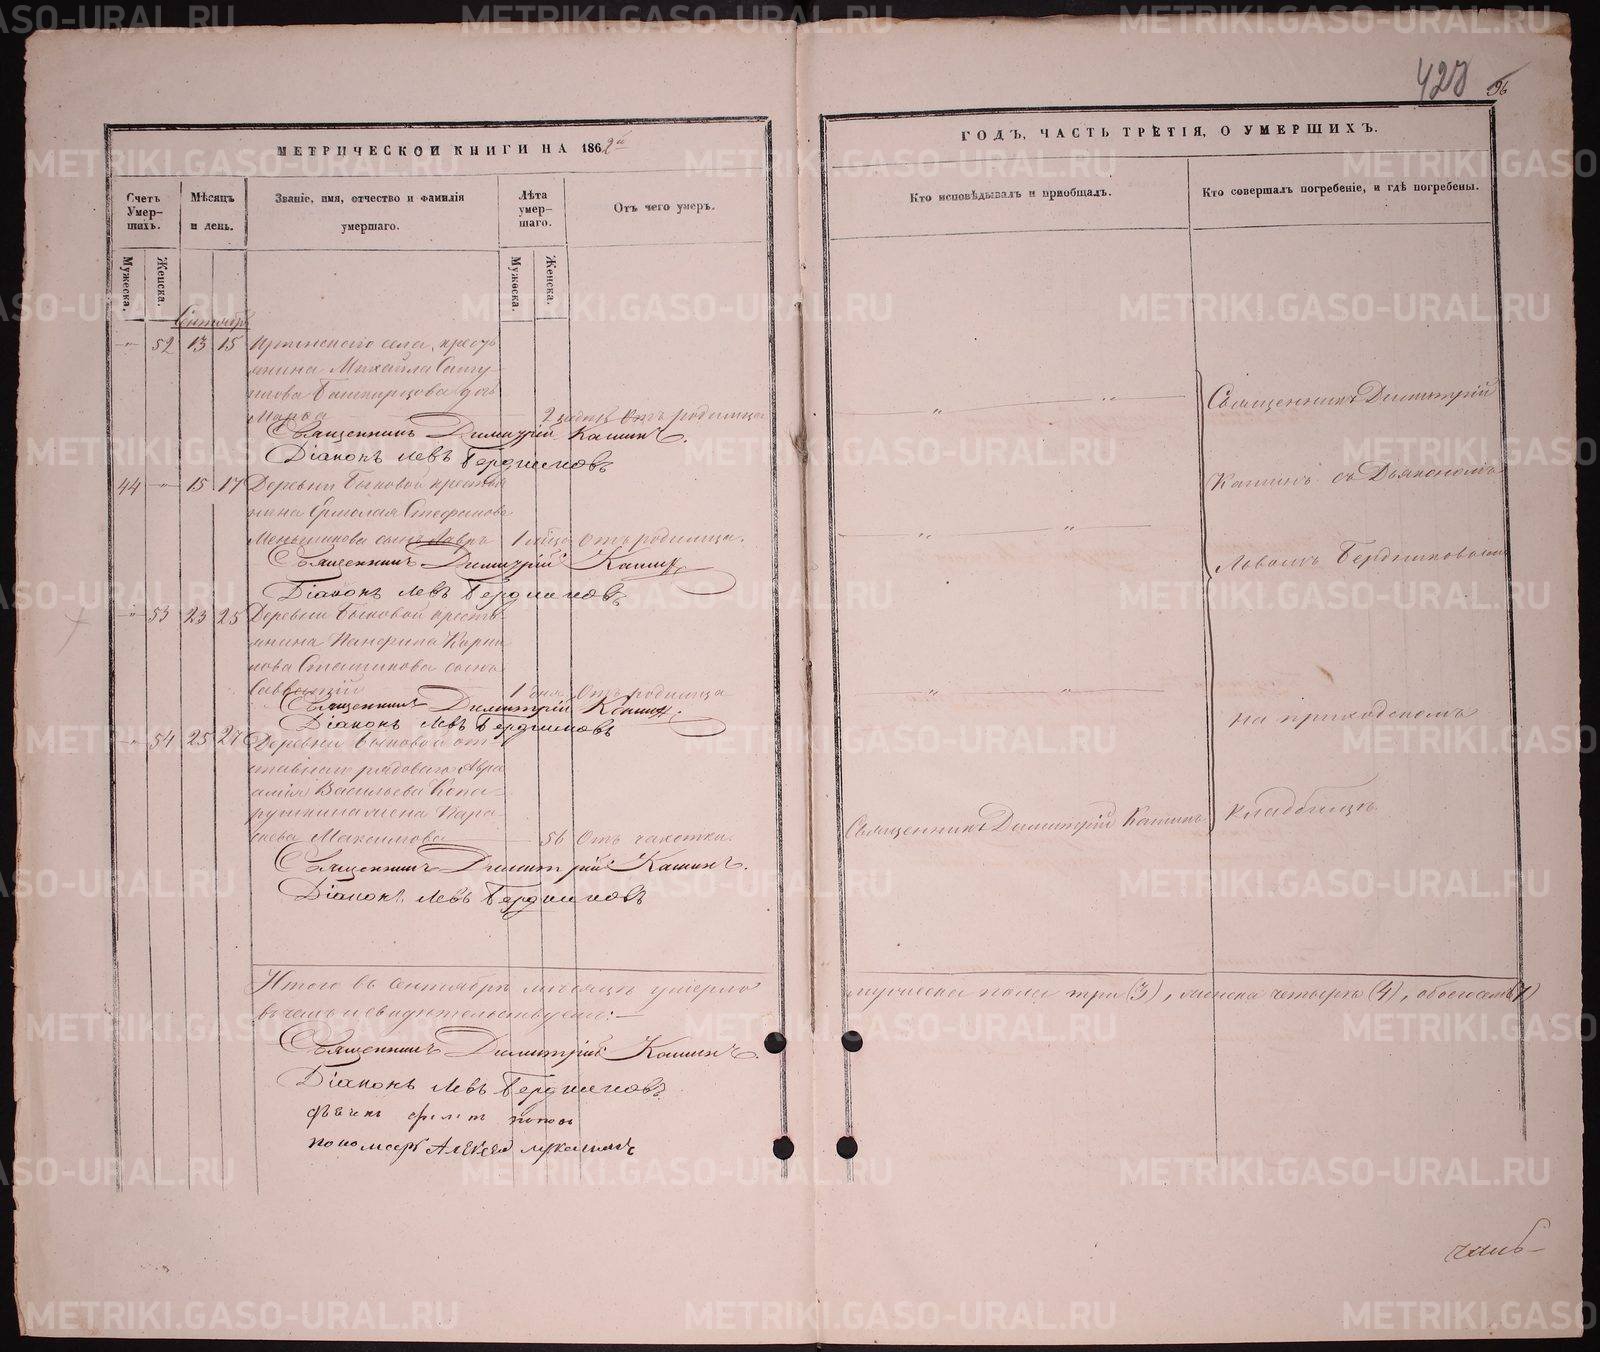 428
96
МЕТРИЧЕСКОЙ КНИГИ НА 1862й
ГОДЪ, ЧАСТЬ ТРЕТІЯ, О УМЕРШИХЪ.
Счетъ Умерших.
Мѣсяцъ и день.
Званіе, имя, отчество и фамилія умершаго.
Лѣта умершаго.
Отъ чего умеръ.
Кто исповѣдывалъ и пріобщалъ.
Кто совершалъ погребеніе, и гдѣ погребены.
Мужеска.
Женска.
Мужеска.
Женска.
Сентябрь
52 13 15 села, кресть
янина Михайла
дочь
Марѳа 2 Отъ родимца
Священникъ Димитрій Кашинъ.
Діаконъ Левъ Бердниковъ
44 15 17 Деревни Быковой крестья
нина Ермолая Стефанова
Меньшикова сынъ Лавръ 1 Отъ родимца.
Священникъ Димитрій Кашинъ
Діаконъ Левъ Бердниковъ
53 23 25 Деревни Быковой кресть
янина Панфила Карпо
нова сынъ
Савватій 1 дня Отъ родимца
Священникъ Димитрій Кашинъ
Діаконъ Левъ Бердниковъ
54 25 27 Деревни Быковой от
ставнаго рядоваго Авра
амія Васильева
жена
Максимова 56 Отъ чахотки.
Священникъ Димитрій Кашинъ.
Діаконъ Левъ Бердниковъ
Священникъ Димитрій
Кашинъ съ Дьякономъ
Львомъ Бердниковымъ
на приходскомъ
кладбищѣ
Священникъ Димитрій Кашинъ
Итого въ сентябрѣ мѣсяцѣ умерло мужеска пола три (3), женска четыре (4), обоего семь (7)
въ чемъ и свидѣтельствуемъ:
Священникъ Димитрій Кашинъ.
Діаконъ Левъ Бердниковъ
пономарь Алексѣй
METRIKI.GASO-URAL.RU